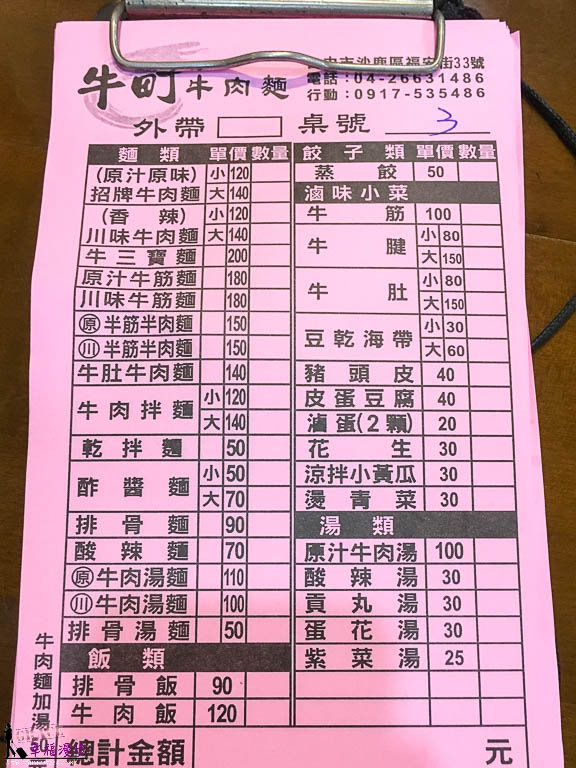 牛町牛肉麵
中市沙鹿區福安街33號
電話:04-26631486
行動:0917-535486
外帶 桌號 3
麵類 單價 數量
(原汁原味) 小 120
招牌牛肉麵 大 140
(香辣) 小 120
川味牛肉麵 大 140
牛三寶麵 200
原汁牛筋麵 180
川味牛筋麵 180
㊊半筋半肉麵 150
㊋半筋半肉麵 150
牛肚牛肉麵 140
牛肉拌麵 小 120
大 140
乾拌麵 50
酢醬麵 小 50
大 70
排骨麵 90
酸辣麵 70
原牛肉湯麵 110
川牛肉湯麵 100
排骨湯麵 50
飯類
排骨飯 90
牛肉飯 120
總計金額 元
餃子類 單價 數量
蒸餃 50
滷味小菜
牛筋 100
牛腱 小 80
大 150
牛肚 小 80
大 150
豆乾海帶 小 30
大 60
豬頭皮 40
皮蛋豆腐 40
滷蛋(2顆) 20
花生 30
涼拌小黃瓜 30
燙青菜 30
湯類
原汁牛肉湯 100
酸辣湯 30
貢丸湯 30
蛋花湯 30
紫菜湯 25
牛肉麵加湯
幸福漫